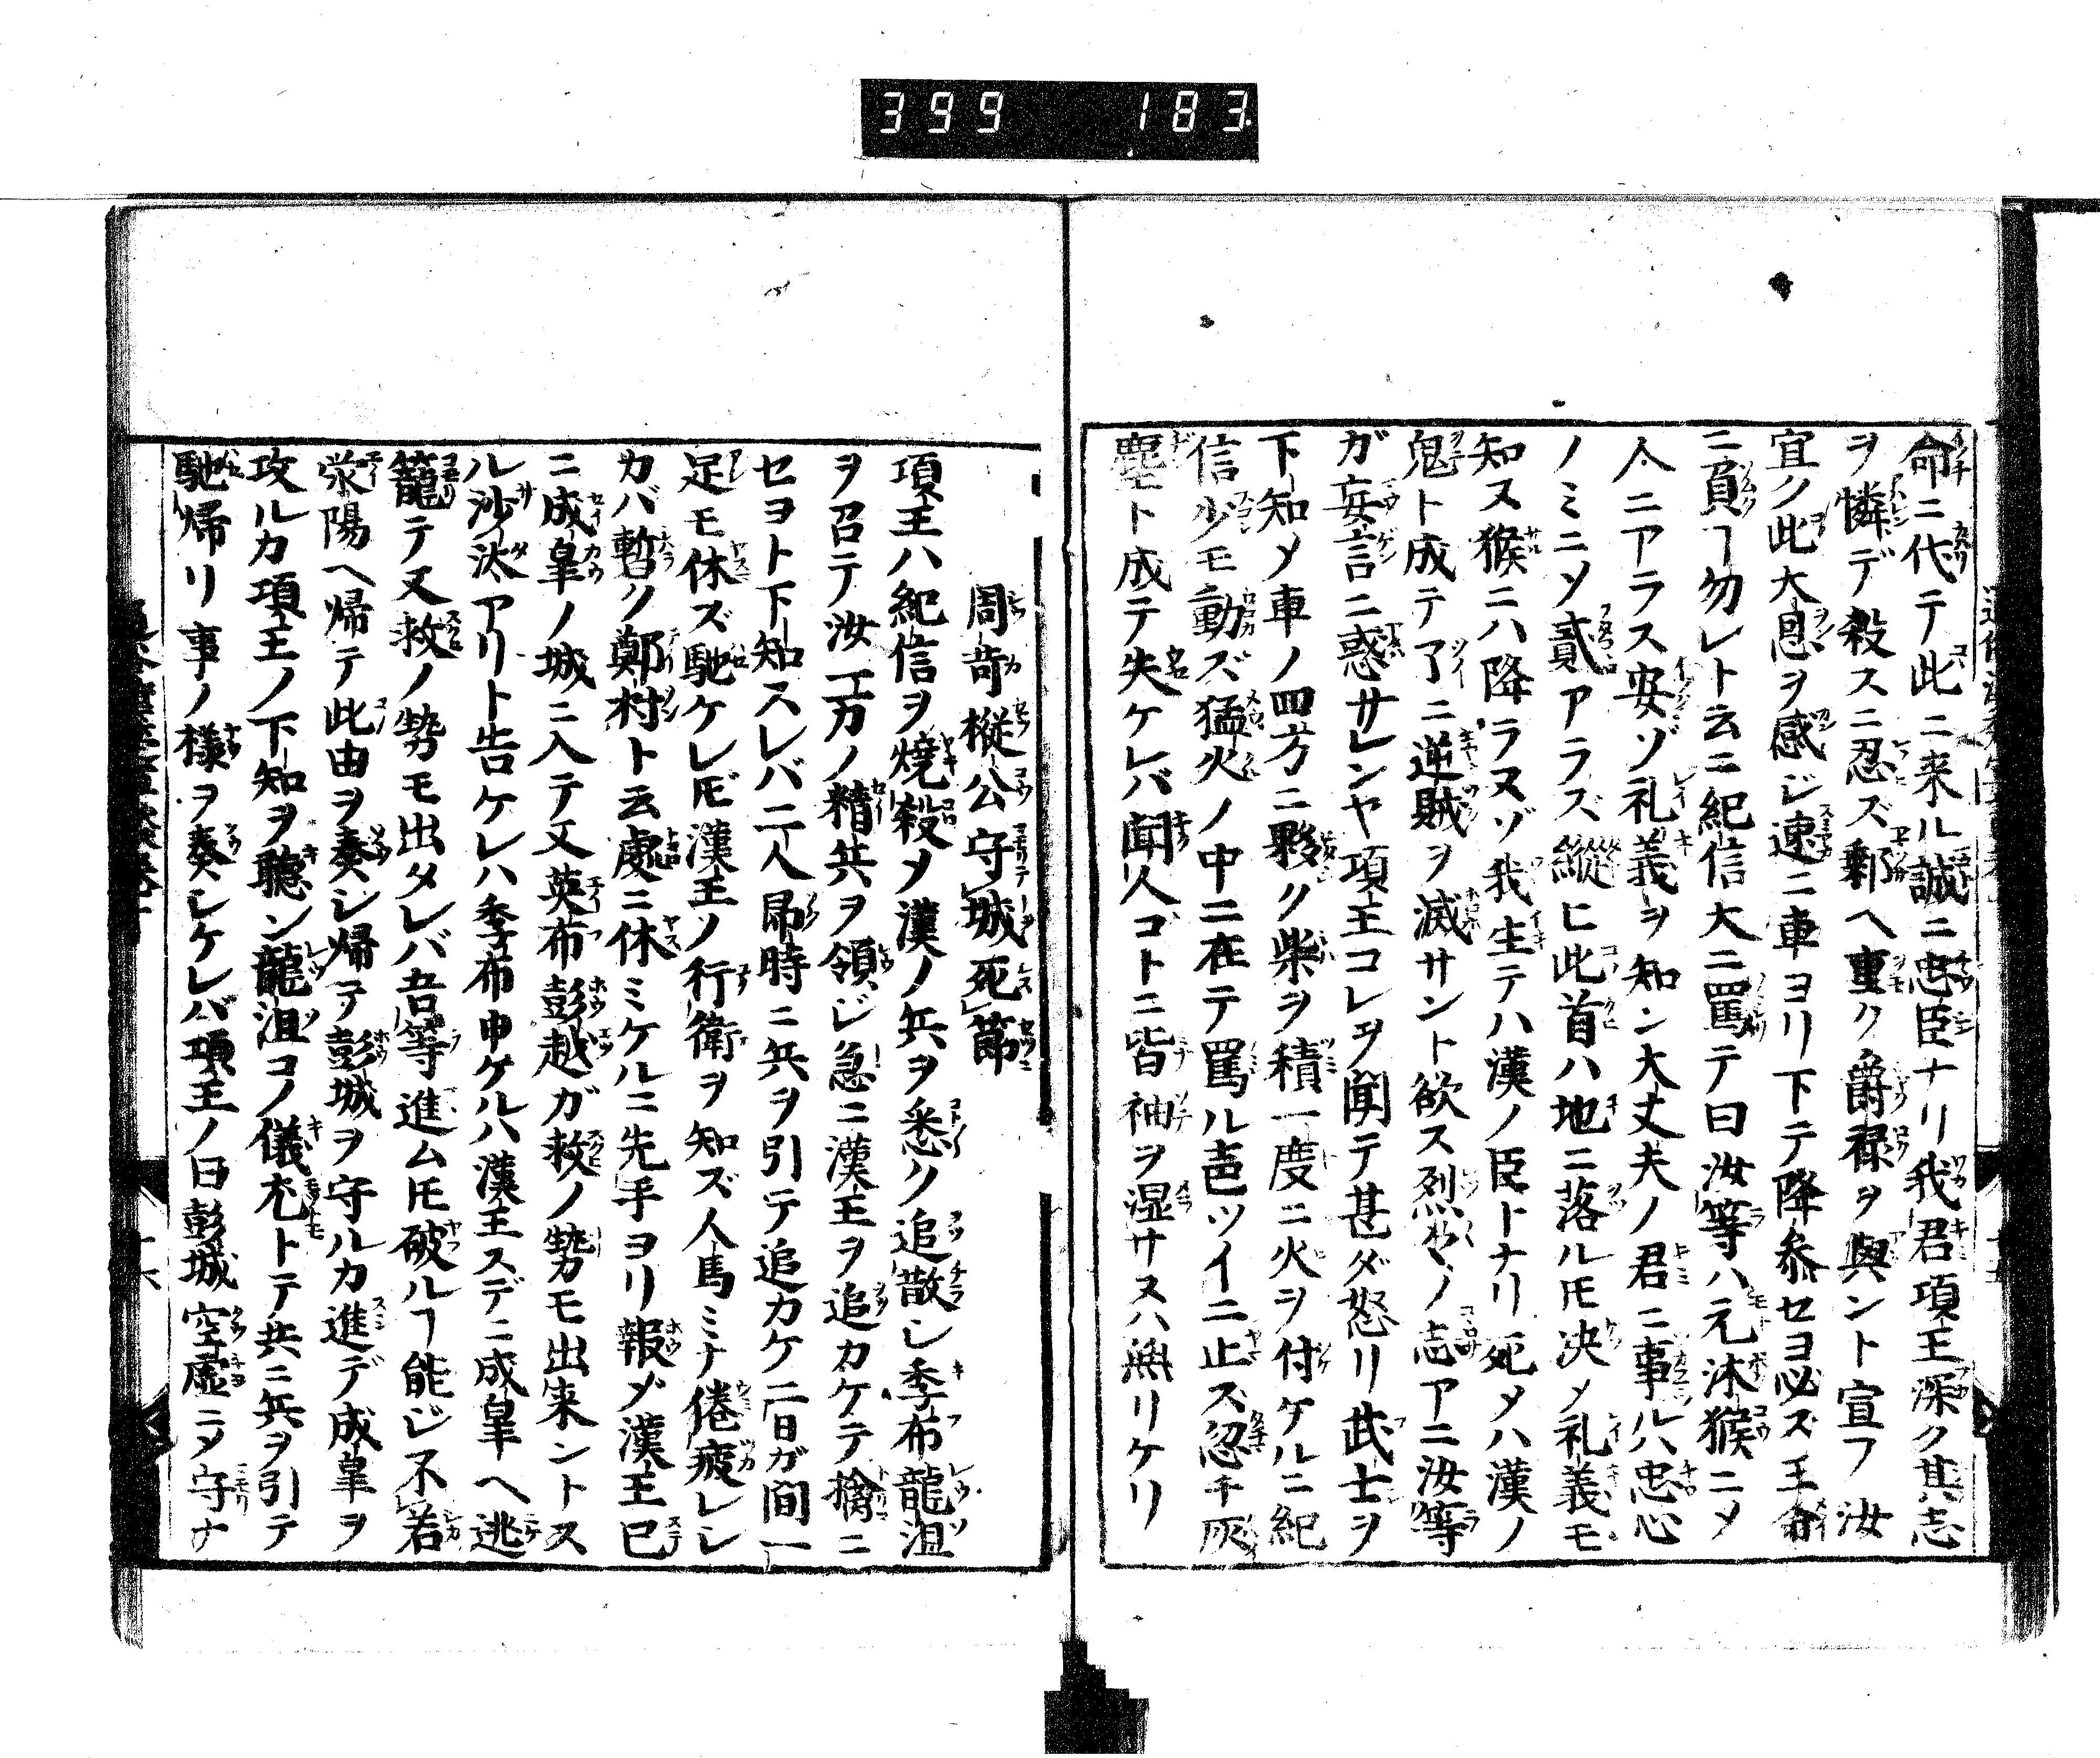 399 183
命ニ代テ此ニ来ル誠ニ忠臣ナリ我君項王深ク其志
ヲ憐デ殺スニ忍ズ郷ヘ重ク爵禄ヲ與ント宣フ汝
宜ク此大恩ヲ感ジ速ニ車ヨリ下テ降参セヨ必ズ王命
ニ負ヿ勿レト云ニ紀信大ニ罵テ曰汝等ハ元沐猴ニメ
人ニアラス安ゾ礼義ヲ知ン大丈夫ノ君ニ事ル八忠心
ノミニソ貳アラズ縱ヒ此首ハ地ニ落ルㇳモ决メ礼義モ
知ヌ猴ニハ降ラヌゾ我生テハ漢ノ臣トナリ死メハ漢ノ
鬼ト成テ了ニ逆賊ヲ滅サント欲ス烈々ノ志アニ汝等
ガ妄言ニ惑サレンヤ項王コレヲ聞テ甚ダ怒リ武士ヲ
下知メ車ノ四方ニ夥ク柴ヲ積一度ニ火ヲ付ケルニ紀
信少モ動ズ猛火ノ中ニ在テ罵ル声ツイニ止ス忽チ灰
塵ト成テ失ケレバ聞人コトニ皆袖ヲ湿サヌハ無リケリ
周苛樅公守城死節
項王ハ紀信ヲ燒殺メ漢ノ兵ヲ悉ク追散シ季布龍沮
ヲ召テ汝一万ノ精兵ヲ領ジ急ニ漢王ヲ追カケテ擒ニ
セヨト下知スレバ二人即時ニ兵ヲ引テ追カケ二日ガ間一
足モ休ズ馳ケレㇳモ漢王ノ行衛ヲ知ズ人馬ミナ倦疲レシ
カバ暫ク鄭村ト云處ニ休ミケルニ先手ヨリ報ゾ漢王已
ニ成皐ノ城ニ入テ又英布彭越ガ救ノ勢モ出来ントス
ル沙汰アリト告ケレハ季布申ケルハ漢王スデニ成皐ヘ逃
籠テ又救ノ勢モ出タレバ吾等進ムㇳモ破ルヿ能ジ不若
滎陽ヘ帰テ此由ヲ奏シ帰テ彭城ヲ守ルカ進デ成皐ヲ
攻ルカ項王ノ下知ヲ聽ン龍沮コノ儀尤トテ共ニ兵ヲ引テ
馳帰リ事ノ樣ヲ奏シケレバ項王ノ曰彭城空虚ニメ守ナ
十六